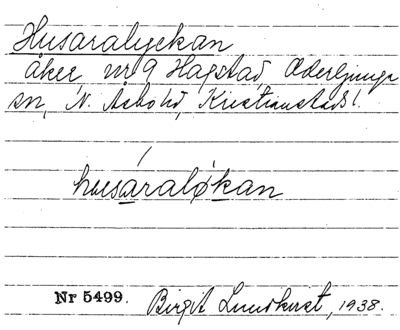 Husaralyckan
åker, nr 9 Hagstad, Oderljunga
sn, N. Åsbo hd, Kristianstads l.
husáralǫkan
Nr 5499. Birgit Lundkvist, 1938.